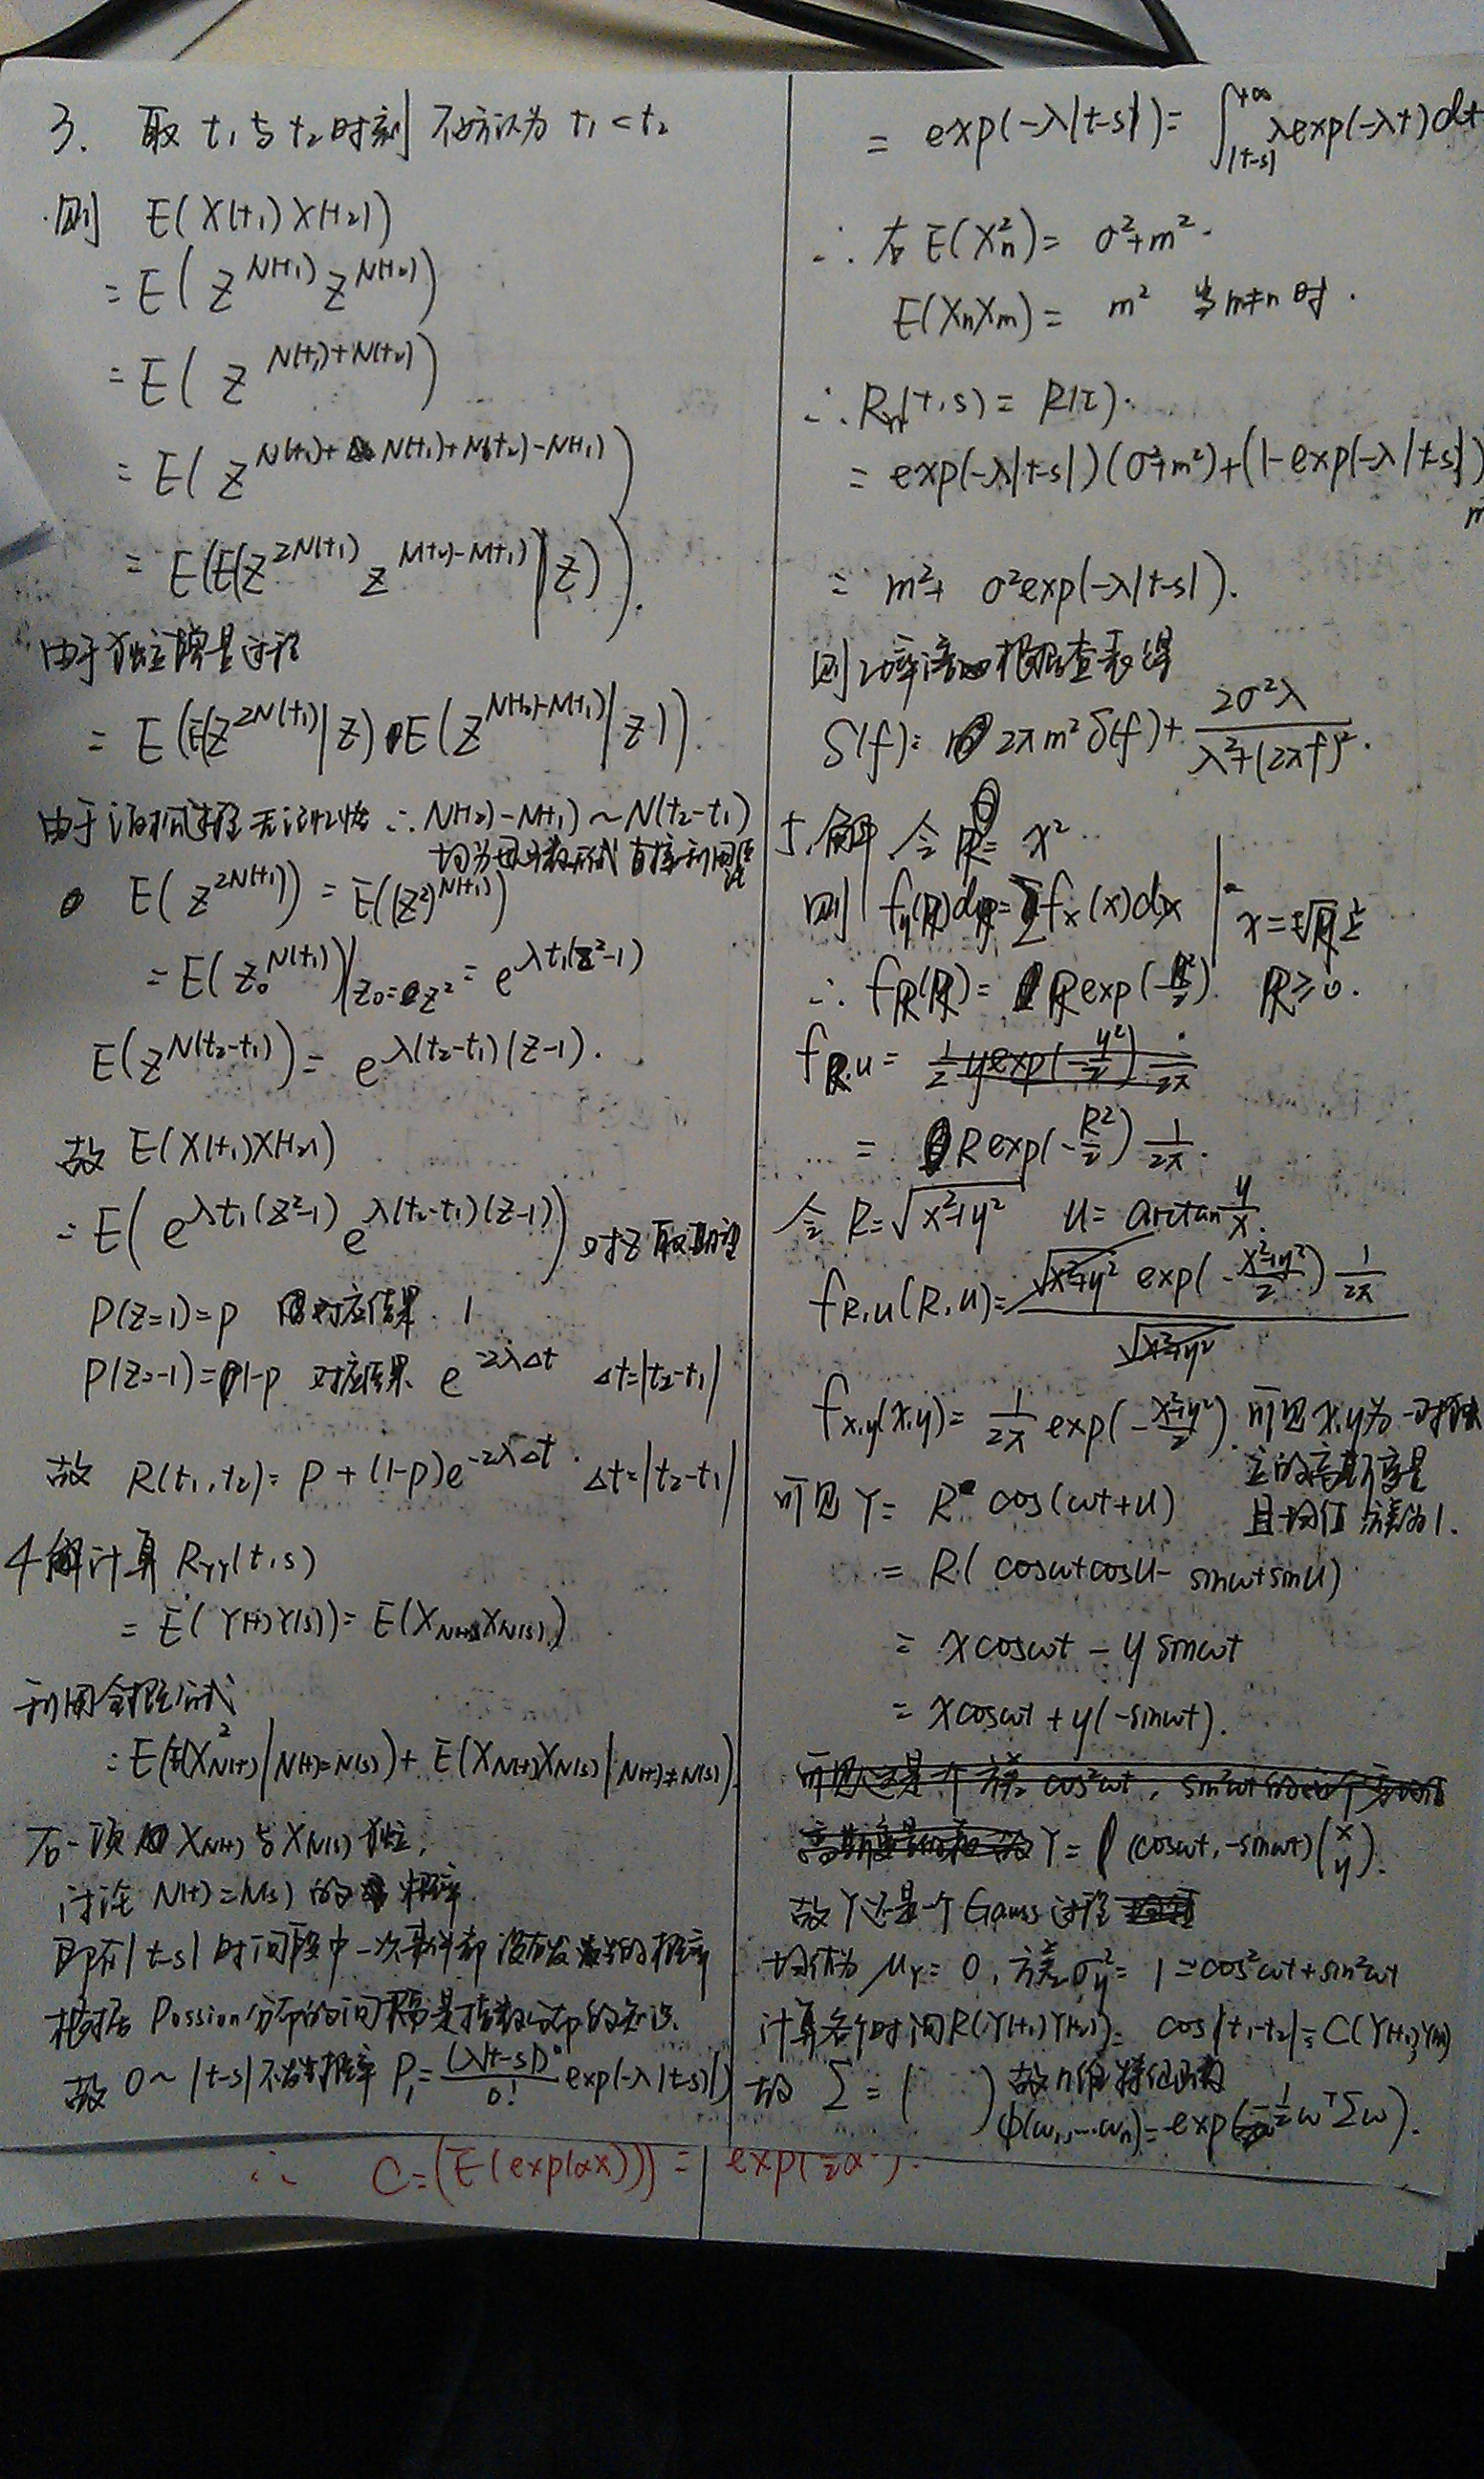 3. 取 t₁与t₂时刻 不妨认为 t₁<t₂
则 E(X(t₁)X(t₂))
= E( Z^{N(t₁)} Z^{N(t₂)} )
= E( Z^{N(t₁)+N(t₂)} )
= E( Z^{N(t₁)+N(t₁)+N(t₂)-N(t₁)} )
= E(E(Z^{2N(t₁)} Z^{N(t₂)-N(t₁)} | Z)).
由于独立增量过程
= E(E(Z^{2N(t₁)}|Z) E(Z^{N(t₂)-N(t₁)}|Z)).
由于泊松过程无记忆性 ∴ N(t₂)-N(t₁) ~ N(t₂-t₁)
均为母函数形式 直接利用
E(Z^{2N(t₁)}) = E((Z²)^{N(t₁)})
= E(Z₀^{N(t₁)})|_{Z₀=Z²} = e^{λt₁(Z²-1)}
E(Z^{N(t₂-t₁)}) = e^{λ(t₂-t₁)(Z-1)}.
故 E(X(t₁)X(t₂))
= E( e^{λt₁(Z²-1)} e^{λ(t₂-t₁)(Z-1)} ) 对Z取期望
P(Z=1)=p 对应结果 1
P(Z=-1)=1-p 对应结果 e^{-2λΔt} Δt=|t₂-t₁|
故 R(t₁,t₂)= p+(1-p)e^{-2λΔt}. Δt=|t₂-t₁|
4 解计算 R_{YY}(t,s)
= E(Y(t)Y(s))= E(X_{N(t)}X_{N(s)})
利用全概公式
= E(E(X²_{N(t)}|N(t)=N(s))+ E(X_{N(t)}X_{N(s)}|N(t)≠N(s)).
右一项 X_{N(t)}与X_{N(s)}独立,
讨论 N(t)=N(s) 的概率.
即在|t-s|时间段中一次事件都没有发生的概率
根据 Possion分布的间隔是指数分布的知识.
故 0~|t-s|不发生概率 P₁= \frac{(λ|t-s|)^0}{0!} exp(-λ|t-s|)
= exp(-λ|t-s|)= ∫_{|t-s|}^{+∞} λexp(-λt)dt
∴ 右 E(X_n²)= σ²+m².
E(X_nX_m)= m² 当m≠n时.
∴ R_{YY}(t,s)= R(τ).
= exp(-λ|t-s|)(σ²+m²)+(1-exp(-λ|t-s|)
= m²+ σ²exp(-λ|t-s|).
则功率谱 根据查表得
S(f)= 2πm²δ(f)+ \frac{2σ²λ}{λ²+(2πf)²}.
5. 解 令 R= x²
则 f_y(R)dR=∑f_x(x)dx |
∴ f_R(R)= R exp(-\frac{R²}{2}) R≥0.
f_{R,u}= \frac{1}{2} y exp(-\frac{y²}{2}) \frac{1}{2π}
= R exp(-\frac{R²}{2}) \frac{1}{2π}.
令 R=\sqrt{x²+y²} u= arctan\frac{y}{x}.
f_{R,u}(R,u)= \frac{\sqrt{x²+y²} exp(-\frac{x²+y²}{2}) \frac{1}{2π}}{\sqrt{x²+y²}}
f_{x,y}(x,y)= \frac{1}{2π} exp(-\frac{x²+y²}{2}). 可见x,y为一对独
立的高斯变量
且均值 方差为1.
可见 Y= R cos(ωt+u)
= R( cosωtcosu- sinωtsinu)
= xcosωt - ysinωt
= xcosωt + y(-sinωt).
可见这是一个方差 cos²ωt, sin²ωt
Y= (cosωt, -sinωt)(x y).
故Y还是一个Gauss过程
均值为 μ_Y= 0, 方差σ_y²= 1=cos²ωt+sin²ωt
计算各个时间R(Y(t₁)Y(t₂))= cos|t₁-t₂|= C(Y(t₁)Y(t₂))
故 Σ = ( ) 故n维特征函数
φ(ω₁,…ω_n)= exp(-\frac{1}{2}ω^TΣω).
∴ C=(E(exp(αx)))=